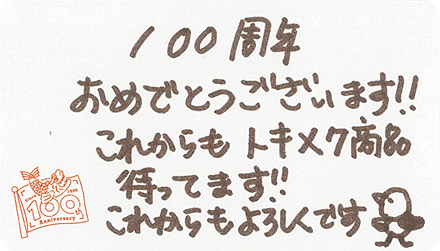 100周年
おめでとうございます!!
これからもトキメク商品
待ってます!!
これからもよろしくです
100
Anniversary